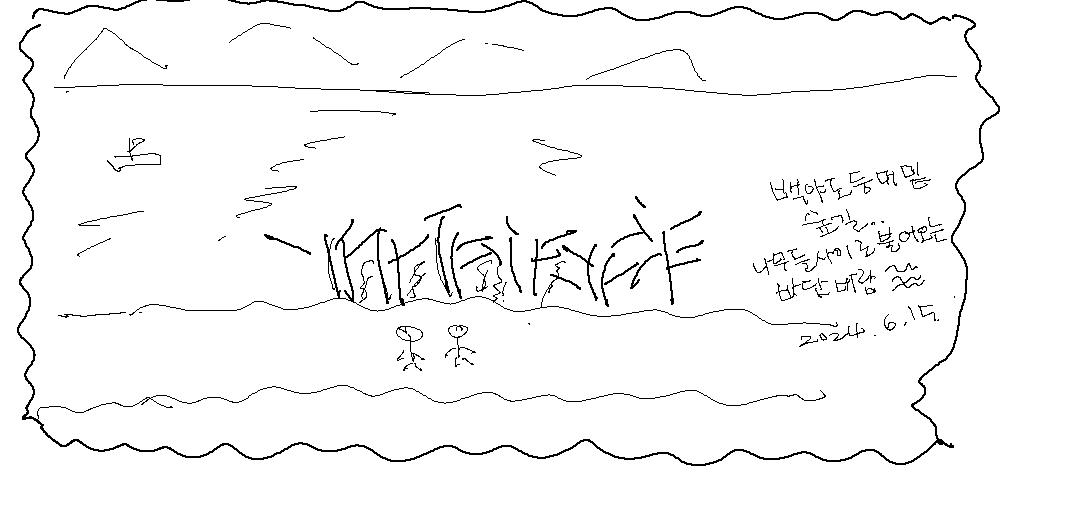 백야도 등대 밑
숲길..
나무들 사이로 불어오는
바단 바람
2024.6.15